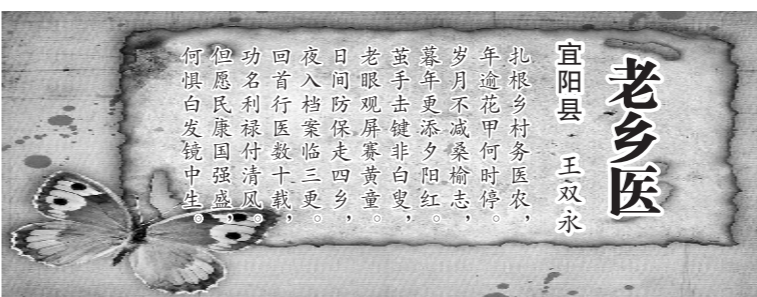 老乡医
宜阳县 王双永
扎根乡村务医农,
年逾花甲何时停。
岁月不减桑榆志,
暮年更添夕阳红。
茧手击键非白叟,
老眼观屏赛黄童。
日间防保走四乡,
夜入档案临三更。
回首行医数十载,
功名利禄付清风。
但愿民康国强盛,
何惧白发镜中生。